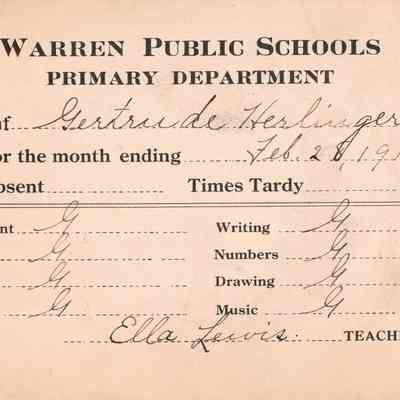 WARREN PUBLIC SCHOOLS
PRIMARY DEPARTMENT
of Gertrude Herlinger
or the month ending Feb. 28, 191
bsent Times Tardy
nt G Writing G
G Numbers G
G Drawing G
G Music G
Ella Lewis. TEACHE